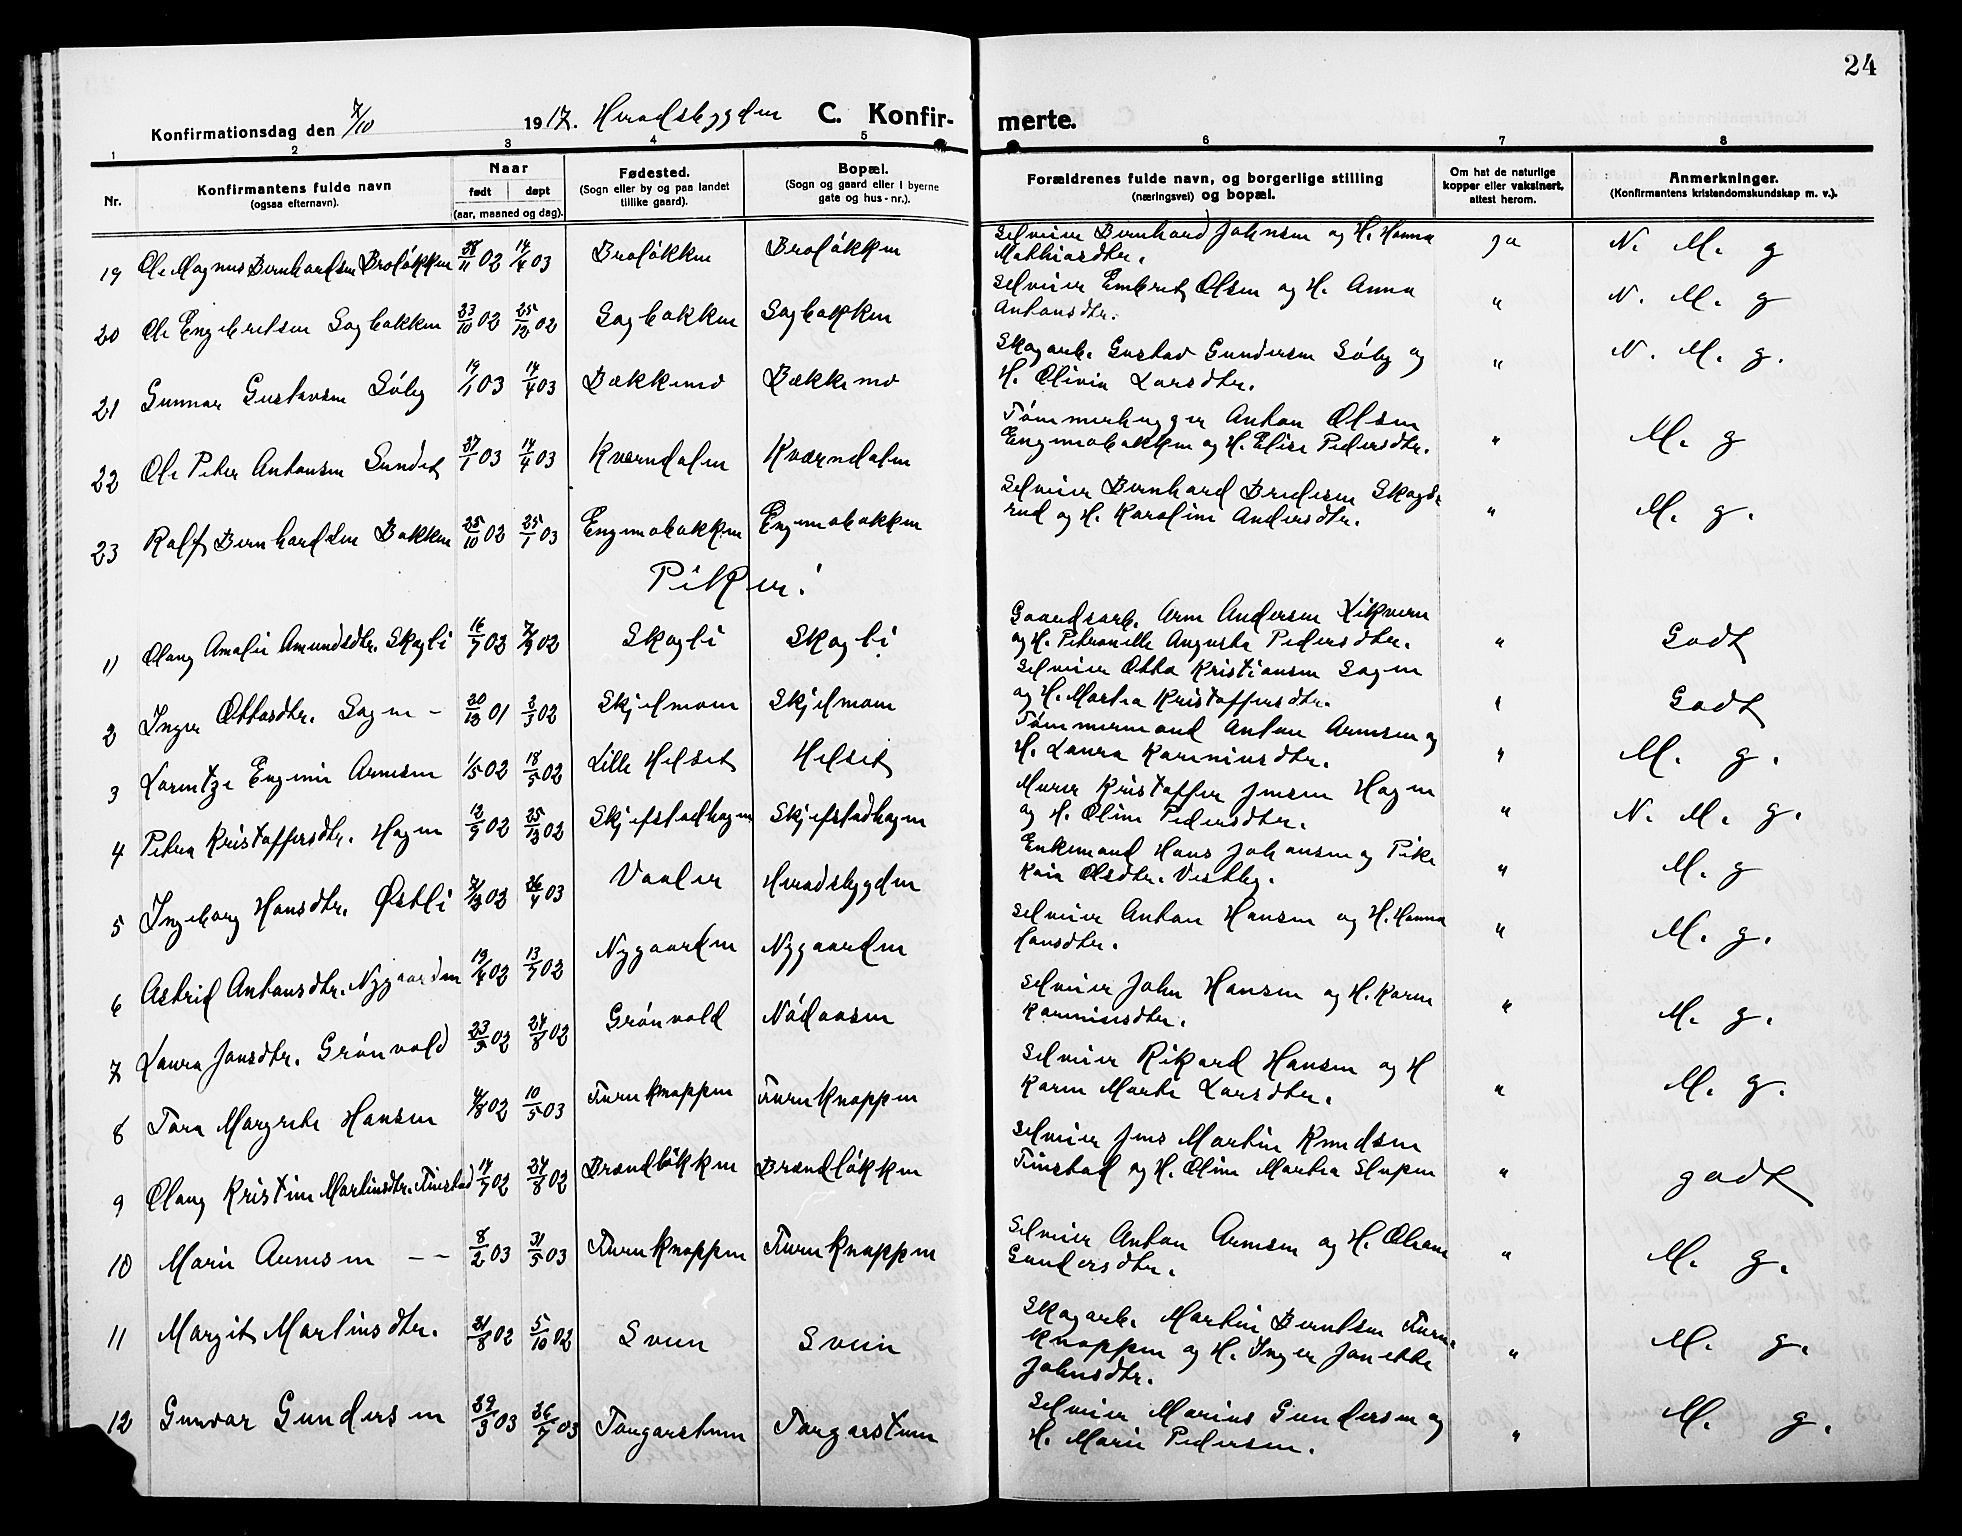 24
Konfirmationsdag den 7/10 1917. Heradsbygden C. Konfir-merte.
1 2 3 4 5 6 7 8
Nr. Konfirmantens fulde navn (ogsaa efternavn). Naar født døpt (aar, maaned og dag). Fødested. (Sogn eller by og paa landet tillike gaard). Bopæl. (Sogn og gaard eller i byerne gate og hus-nr.). Forældrenes fulde navn, og borgerlige stilling (næringsvei) og bopæl. Om hat de naturlige kopper eller vaksinert, attest herom. Anmerkninger. (Konfirmantens kristendomskundskap m. v.).
19 Ole Magnus Bernhardsen Broløkken 28/11 02 14/4 03 Broløkken Broløkken Selveier Bernhard Johnsen og H. Hanna ja N. M. g
Mathiasdtr.
20 Ole Engebretsen Sagbakken 23/10 02 25/12 02 Sagbakken Sagbakken Selveier Embret Olsen og H. Anna " N. M. g
Antonsdtr.
21 Gunnar Gustavsen Søby 19/1 03 14/4 03 Bækkemo Bækkemo Skogarb. Gustav Gundersen Søby og " N. M. g.
H. Olivia Larsdtr.
22 Ole Peter Antonsen Sundet 27/1 03 14/4 03 Kværndalen Kværndalen Tømmerhugger Anton Olsen " M. g
Engenobakken og H. Elise Pedersdtr.
23 Ralf Bernhardsen Bakken 25/10 02 25/1 03 Engenobakken Engenobakken Selveier Bernhard Bredesen Skogs- " M. g.
rud og H. Karoline Andersdtr.
Piker:
1) Olaug Amalie Amundsdtr. Skogli 16/7 02 7/9 02 Skogli Skogli Gaardsarb. Arne Andersen Kikvern " Godt
og H. Petronille Augusta Pedersdtr.
2 Inger Ottosdtr. Sagen - 20/12 01 2/3 02 Skjelmoen Skjelmoen Selveier Otto Kristiansen Sagen " Godt
og H. Martea Kristoffersdtr.
3 Lorentze Engenie Arnesen 1/5 02 18/5 02 Lille Helset Helset Tømmermand Anton Arnesen og " M. g.
H. Laura Kareniusdtr.
4 Petra Kristoffersdtr. Hagen 12/9 02 25/12 02 Skjefstadhagen Skjefstadhagen Murer Kristoffer Jensen Hagen " N. M. g.
og H. Oline Pedersdtr.
5 Ingeborg Hansdtr. Østli 7/12 02 26/4 03 Vaaler Heradsbygden Enkemand Hans Johansen og Pike " M. g
Kaia Olsdtr. Vestby.
6 Astrid Antonsdtr. Nygaarden 19/4 02 13/7 02 Nygaarden Nygaarden Selveier Anton Hansen og H. Hanna " M. g.
Hansdtr.
7 Laura Jonsdtr. Grønvold 23/5 02 24/8 02 Grønvold Nødaasen Selveier John Hansen og H. Karen " M. g.
Kareniusdtr.
8 Tora Margrete Hansen 4/8 02 10/5 03 Furuknappen Furuknappen Selveier Rikard Hansen og H " M. g.
Karen Marte Larsdtr.
9 Olaug Kristine Martinsdtr. Finstad 14/7 02 24/8 02 Brændløkken Brændløkken Selveier Jens Martin Knudsen " godt
Finstad og H. Oline Martea Slupen
10 Marie Arnesen - - 8/2 03 31/5 03 Furuknappen Furuknappen Selveier Anton Arnesen og H. Oleane " M. g.
Gundersdtr.
11 Margit Martinsdtr. 31/8 02 5/10 02 Sveen Sveen Skogarb. Martin Berntsen Furu- " M. g.
knappen og H. Inger Janette
Johnsdtr.
12 Gunvor Gundersen 29/3 03 26/7 03 Torgarstuen Torgarstuen Selveier Marius Gundersen og " M. g.
H. Marie Pedersen.